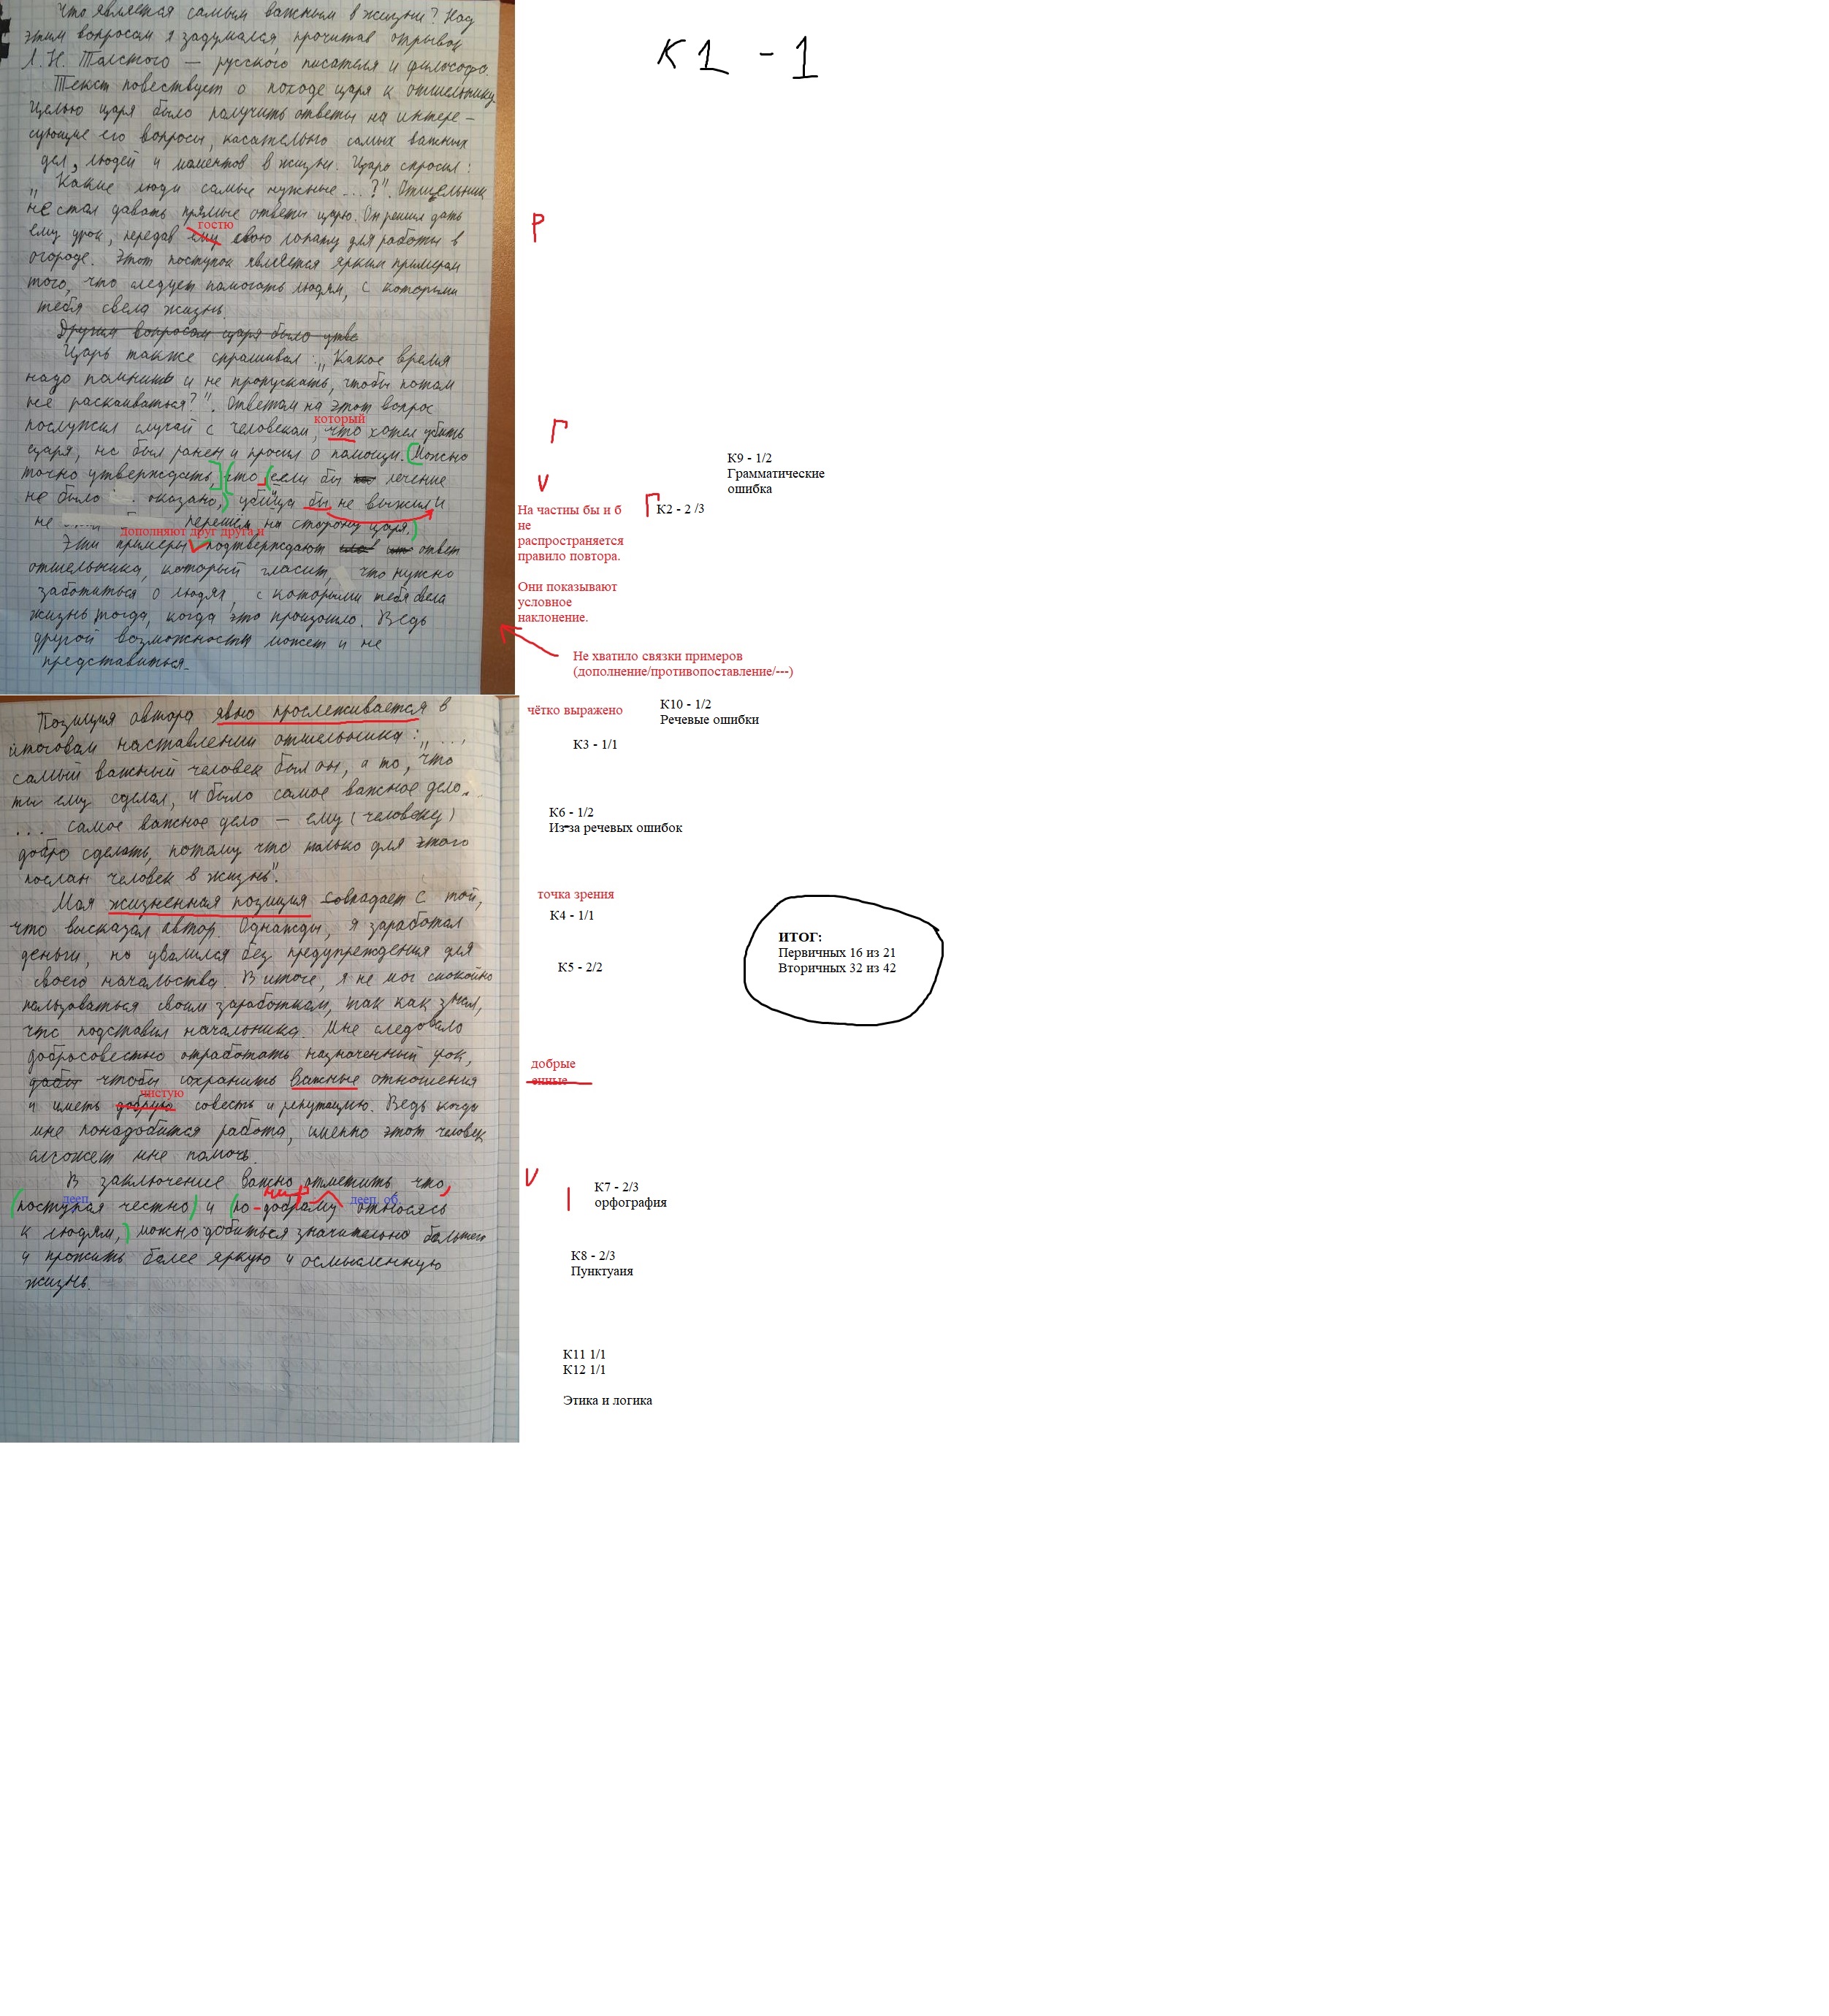 Что является самым важным в жизни? Над
этим вопросом я задумался, прочитав отрывок
Л. Н. Толстого — русского писателя и философа.
Текст повествует о походе царя к отшельнику.
Целью царя было получить ответы на интере-
сующие его вопросы, касательно самых важных
дел, людей и моментов в жизни. Царь спросил:
„Какие люди самые нужные ...?". Отшельник
не стал давать прямые ответы царю. Он решил дать
гостю
ему урок, передав ему свою лопату для работы в
Р
огороде. Этот поступок является ярким примером
того, что следует помогать людям, с которыми
тебя свела жизнь.
Другим вопросом царя было утве
Царь также спрашивал: „Какое время
надо помнить и не пропускать, чтобы потом
не раскаиваться?". Ответом на этот вопрос
который
послужил случай с человеком, что хотел убить
Г
царя, но был ранен и просил о помощи. Можно
точно утверждать, что если бы лечение
V
не было оказано, убийца бы не выжил и
не перешёл на сторону царя.
дополняют друг друга и
Эти примеры подтверждают ответ
отшельника, который гласит, что нужно
заботиться о людях, с которыми тебя свела
жизнь тогда, когда это произошло. Ведь
другой возможности может и не
представиться.
К1 - 1
К9 - 1/2
Грамматические
ошибка
Г К2 - 2 /3
На частиы бы и б
не
распространяется
правило повтора.
Они показывают
условное
наклонение.
Не хватило связки примеров
(дополнение/противопоставление/---)
Позиция автора явно прослеживается в
итоговом наставлении отшельника: „...,
самый важный человек был он, а то, что
ты ему сделал, и было самое важное дело...
... самое важное дело — ему (человеку)
добро сделать, потому что только для этого
послан человек в жизнь".
Моя жизненная позиция совпадает с той,
что высказал автор. Однажды, я заработал
деньги, но уволился без предупреждения для
своего начальства. В итоге, я не мог спокойно
пользоваться своим заработком, так как знал,
что подставил начальника. Мне следовало
добросовестно отработать назначенный срок,
дабы чтобы сохранить важные отношения
чистую
и иметь добрую совесть и репутацию. Ведь когда
мне понадобится работа, именно этот человек
сможет мне помочь.
В заключение важно отметить что,
дееп.
нар
дееп. об.
поступая честно и по-доброму относясь
к людям, можно добиться значительно большего
и прожить более яркую и осмысленную
жизнь.
чётко выражено
К10 - 1/2
Речевые ошибки
К3 - 1/1
К6 - 1/2
Из-за речевых ошибок
точка зрения
К4 - 1/1
К5 - 2/2
ИТОГ:
Первичных 16 из 21
Вторичных 32 из 42
добрые
енные
V
К7 - 2/3
орфография
К8 - 2/3
Пунктуаия
К11 1/1
К12 1/1
Этика и логика